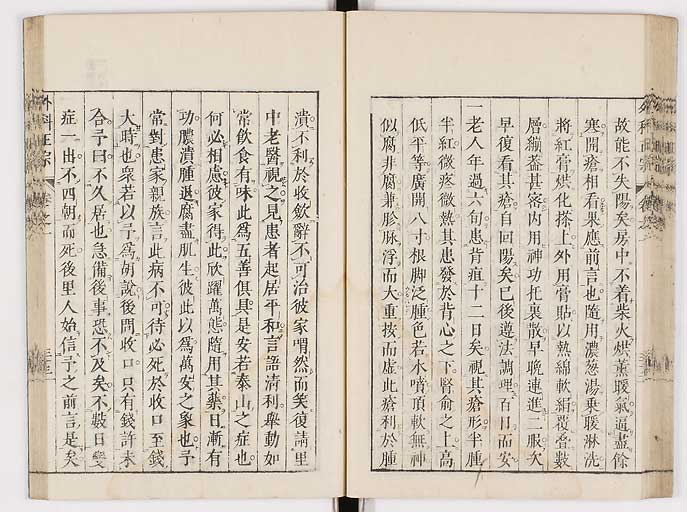 故能不失陽矣房中不着柴火烘薰暖氣逼盡餘
寒開瘡相看果應前言也隨用濃葱湯乗暖淋洗
將紅膏烘化搽上外用膏貼以熱綿軟絹覆疊數
層繃葢甚宻内用神功托裏散早晚連進二服次
早復看其瘡自回陽矣已後遵法調理百日而安
一老人年過六旬患背疽十二日矣視其瘡形半腫
半紅微疼微熱其患發於背心之下腎俞之上高
低平等廣開八寸根脚泛腫色若水噴頂軟無神
似腐非腐兼診脉浮而大重按而虚此瘡利於腫
潰不利於收斂辭不可治彼家喟然而笑復請里
中老醫視之見患者起居平和言語清利舉動如
常飲食有味此爲五善俱具是安若泰山之症也
何必相慮彼家得此欣躍萬態隨用其藥日漸有
功膿潰腫退腐盡肌生彼此以爲萬安之象也予
常對患家親族言此病不可待必死於收口至錢
大時也衆若以予爲胡說後問收口只有錢許未
合予曰不久居也急備後事恐不及矣不數日變
症一出不四朝而死後里人始信予之前言是矣
外科正宗